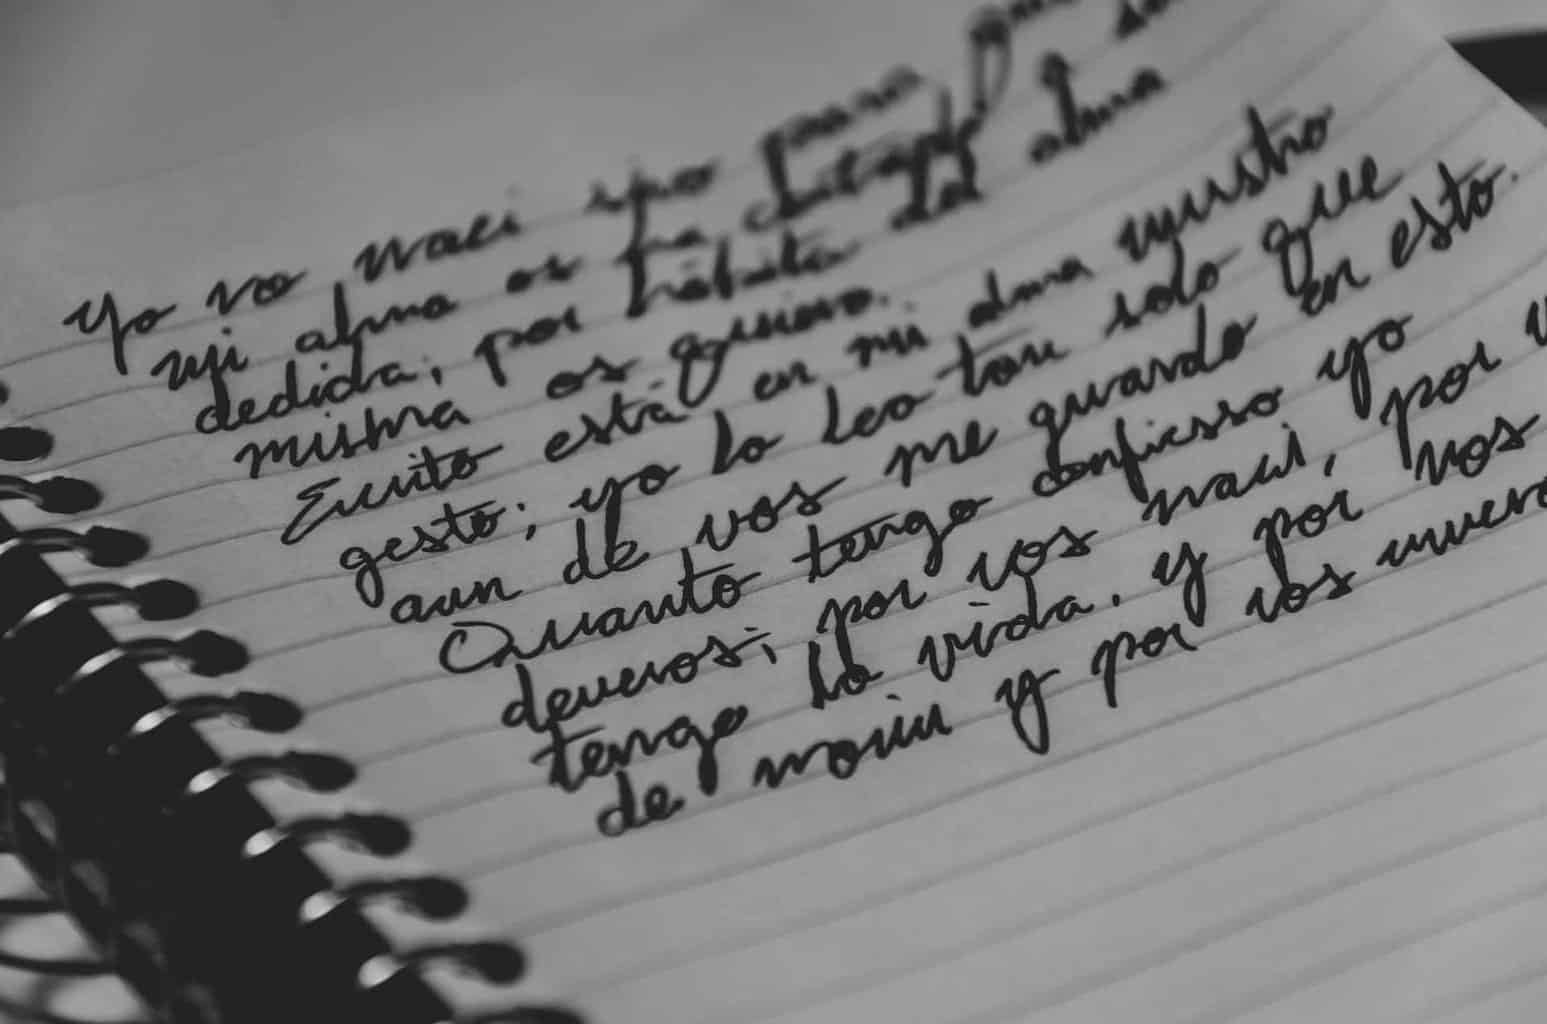 Yo no naci sino para
mi alma os ha cortado a su
dedida; por hábito del alma
misma os quiero.
Escrito está en mi alma vuestro
gesto; yo lo leo tan solo que
aun de vos me guardo en esto.
Quanto tengo confiesso yo
deveros; por vos naci, por
tengo la vida. y por vos
de morir y por vos muero